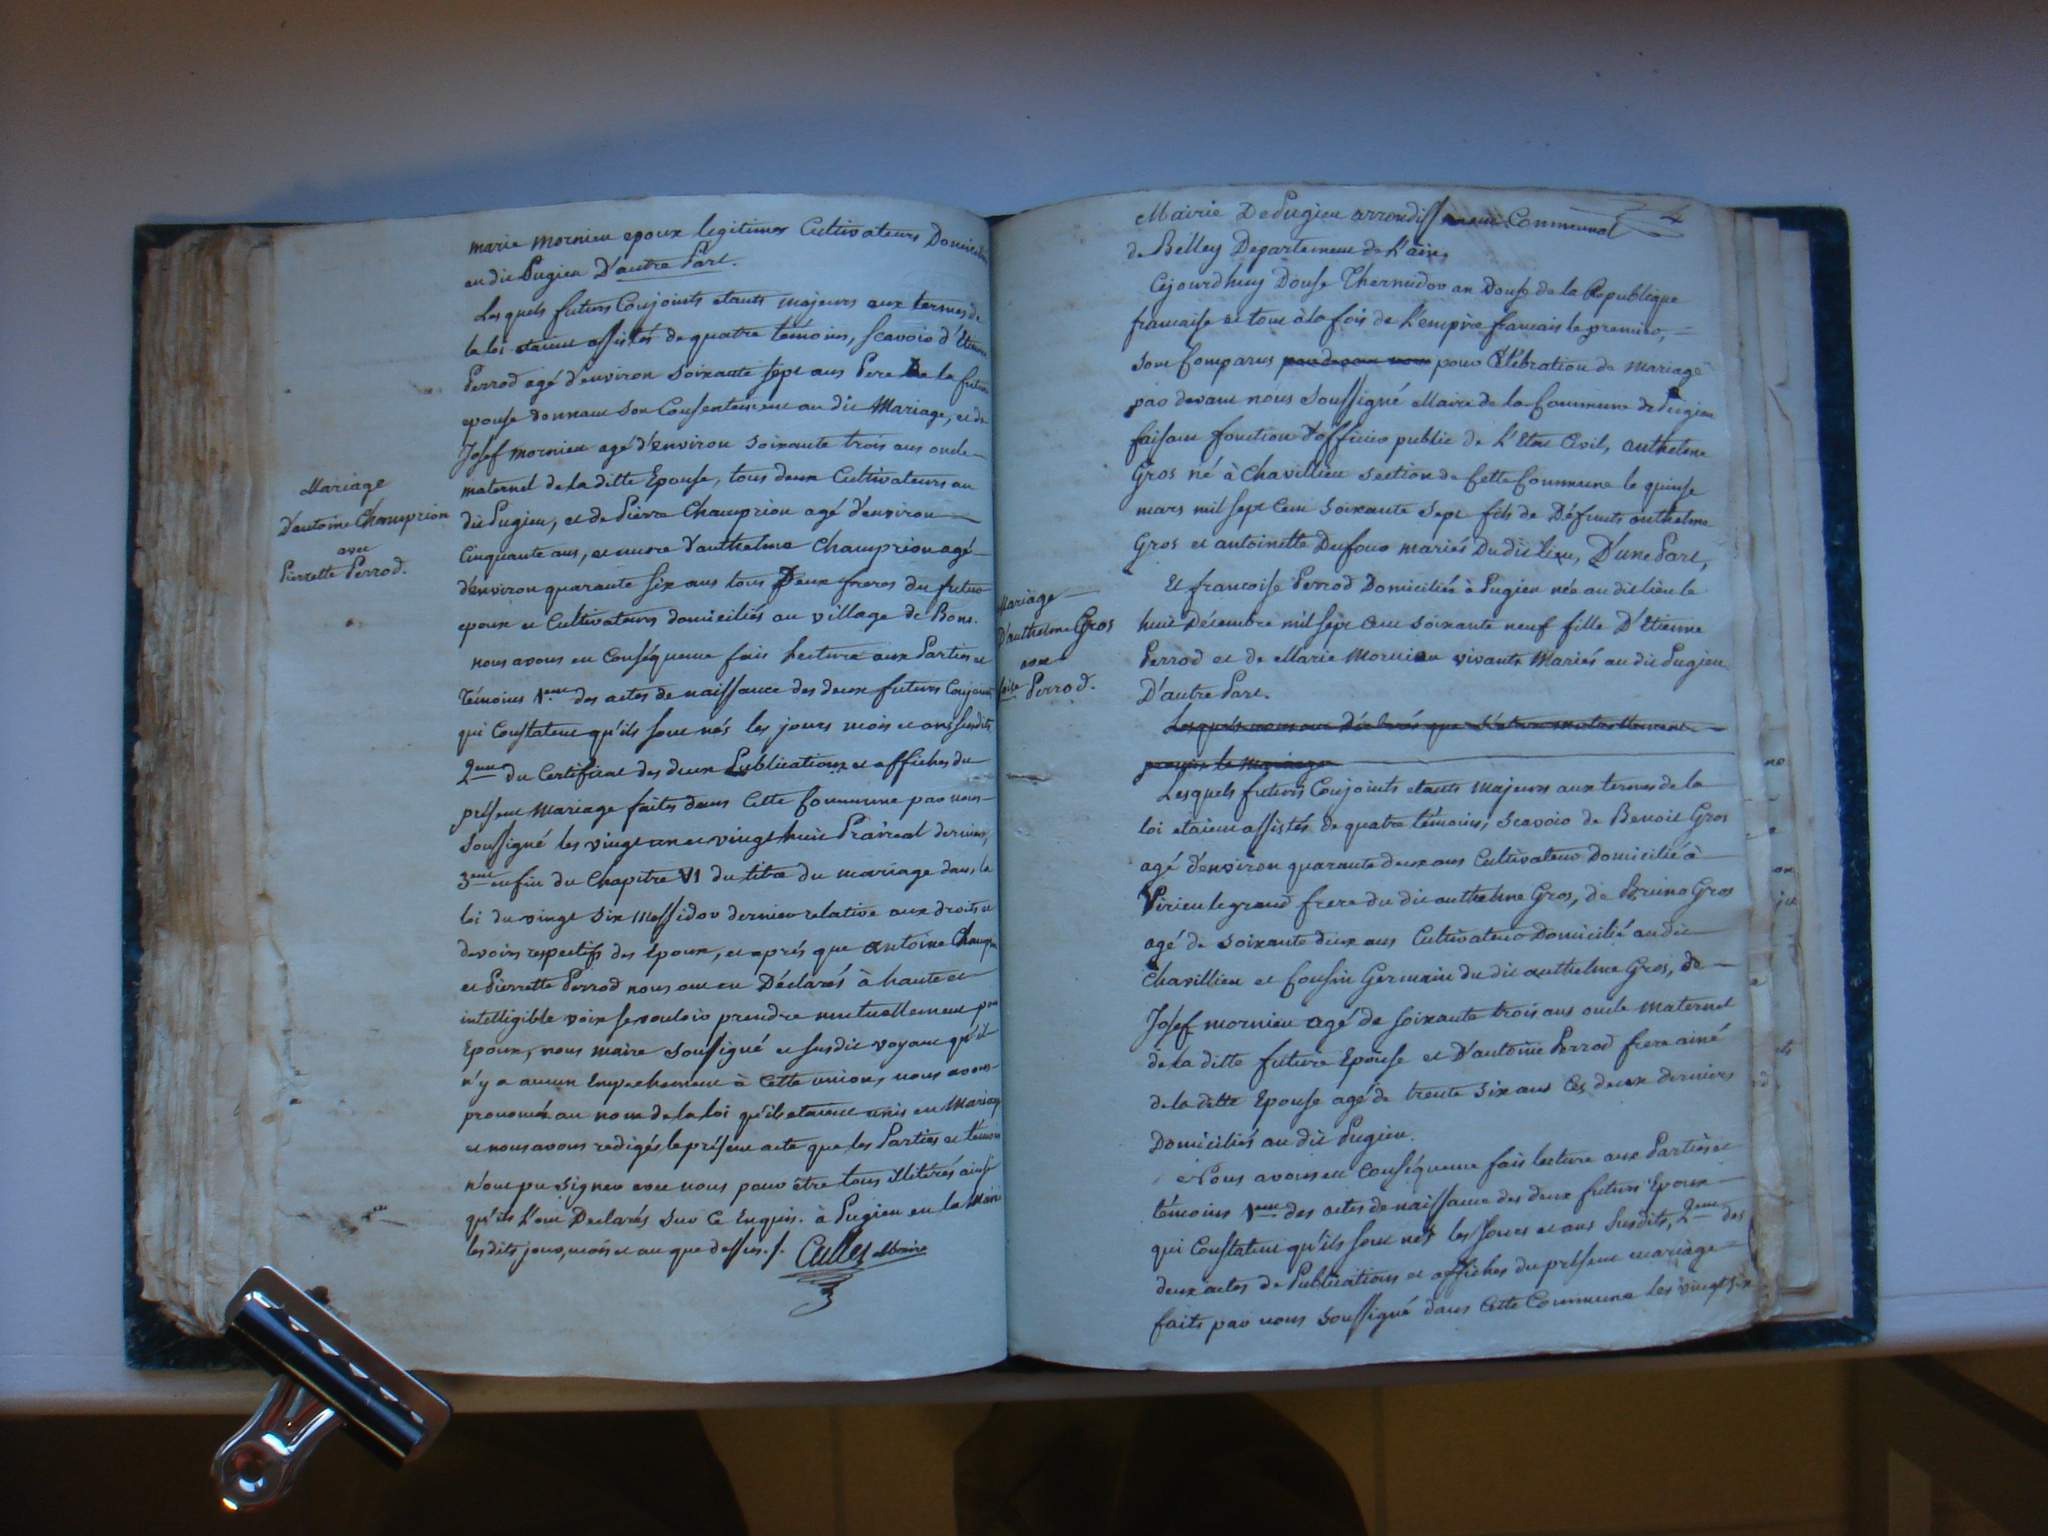 marie mornieu epoux legitimes Cultivateurs Domicilies
au dit Pugieu D'autre Part.
Lesquels futurs Conjoints etants majeurs aux termes de
la loi etaient assistés de quatre témoins, scavoir d'Etienne
Perrod agé d'environ soixante sept ans Pere de la future
epouse donnant son Consentement au dit Mariage, et de
Josef mornieu agé d'environ soixante trois ans oncle
maternel de la ditte Epouse, tous deux Cultivateurs au
dit Pugieu, et de Pierre Champrion agé d'environ
Cinquante ans, et encore d'anthelme Champrion agé
d'environ quarante six ans tous Deux freres du futur
epoux et Cultivateurs domiciliés au village de Bons.
nous avons en Conséquence fait lecture aux Parties et
témoins 1.ent des actes de naissance des deux futurs Conjoints
qui Constatent qu'ils sont nés les jours mois et ans susdits
2ent du Certificat des deux Publications et affiches du
présent Mariage faites dans Cette Commune par nous
soussigné les vingt un et vingt huit Prairéal dernier,
3ent enfin du Chapitre VI du titre du mariage dans la
loi du vingt six Messidor dernier relative aux droits et
devoirs respectifs des Epoux, et aprés que antoine Champrion
et Pierrette Perrod nous ont eu Déclarés à haute et
intelligible voix se vouloir prendre mutuellement pour
Epoux, nous maire soussigné et susdit voyant qu'il
n'y a aucun Empechement à Cette union, nous avons
prononcé au nom de la loi qu'ils etaient unis en Mariage
et nous avons redigés le présent acte que les Parties et témoins
n'ont pu signer avec nous pour être tous illitérés ainsi
qu'ils l'ont Declarés sur ce Enquis. à Pugieu en la Mairie
les dits jour, mois et an que dessus./. Cullet Maire
Mariage
D'antoine Champrion
avec
Pierrette Perrod.
4
Mairie De Pugieu arrondissement Communal
de Belley Departement de L'ain,
Cejourdhuy Douse Thermidor an Douse de la Republique
francaise et tout à la fois de L'empire francais le premier,
sont Comparus par devant nous pour Célébration de Mariage
par devant nous soussigné Maire de la Commune de Pugieu
faisant fonction d'officier public de L'Etat Civil, anthelme
Gros né à Chavillieu section de Cette Commune le quinse
mars mil sept Cent soixante sept fils de Défunts anthelme
Gros et antoinette Dufour mariés Du dit lieu, D'une Part,
Et francoise Perrod Domiciliée à Pugieu née au dit lieu le
huit Décembre mil sept Cent soixante neuf fille D'Etienne
Perrod et de Marie Mornieu vivants Mariés au dit Pugieu
D'autre Part.
Lesquels nous ont Déclarés que
Lesquels futurs Conjoints etants Majeurs aux termes de la
loi etaient assistés de quatre témoins, scavoir de Benoit Gros
agé d'environ quarante deux ans Cultivateur Domicilié à
Virieu le grand frere du dit anthelme Gros, de Bruno Gros
agé de soixante deux ans Cultivateur Domicilié au dit
Chavillieu et Cousin Germain du dit anthelme Gros, de
Josef mornieu agé de soixante trois ans oncle Maternel
de la ditte future Epouse et D'antoine Perrod frere ainé
de la ditte Epouse agé de trente six ans Ces deux derniers
Domiciliés au dit Pugieu.
Nous avons en Conséquence fait lecture aux Parties et
témoins 1ent des actes de naissance des deux futurs Epoux
qui Constatent qu'ils sont nés les Jours et ans susdits, 2ent des
deux actes de Publications et affiches du présent mariage
faits par nous soussigné dans Cette Commune les vingt six
Mariage
D'anthelme Gros
avec
Perrod.